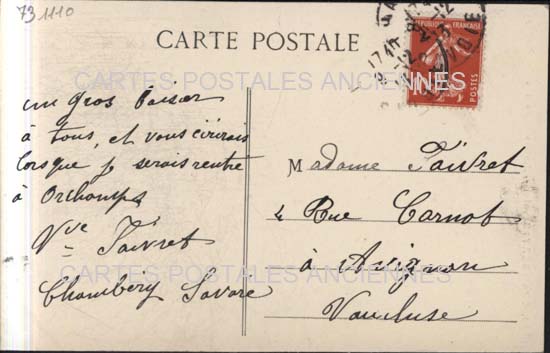 73 1110
CARTE POSTALE
REPUBLIQUE FRANÇAISE
10
POSTES
CARTES POSTALES ANCIENNES
un gros baiser
à tous, et vous écrirais
lorsque je serais rentré
à Orchamps
Vve Faivret
Chambery Savoie
Madame Faivret
4 Rue Carnot
à Avignon
Vaucluse
CARTES POSTALES ANCIENNES